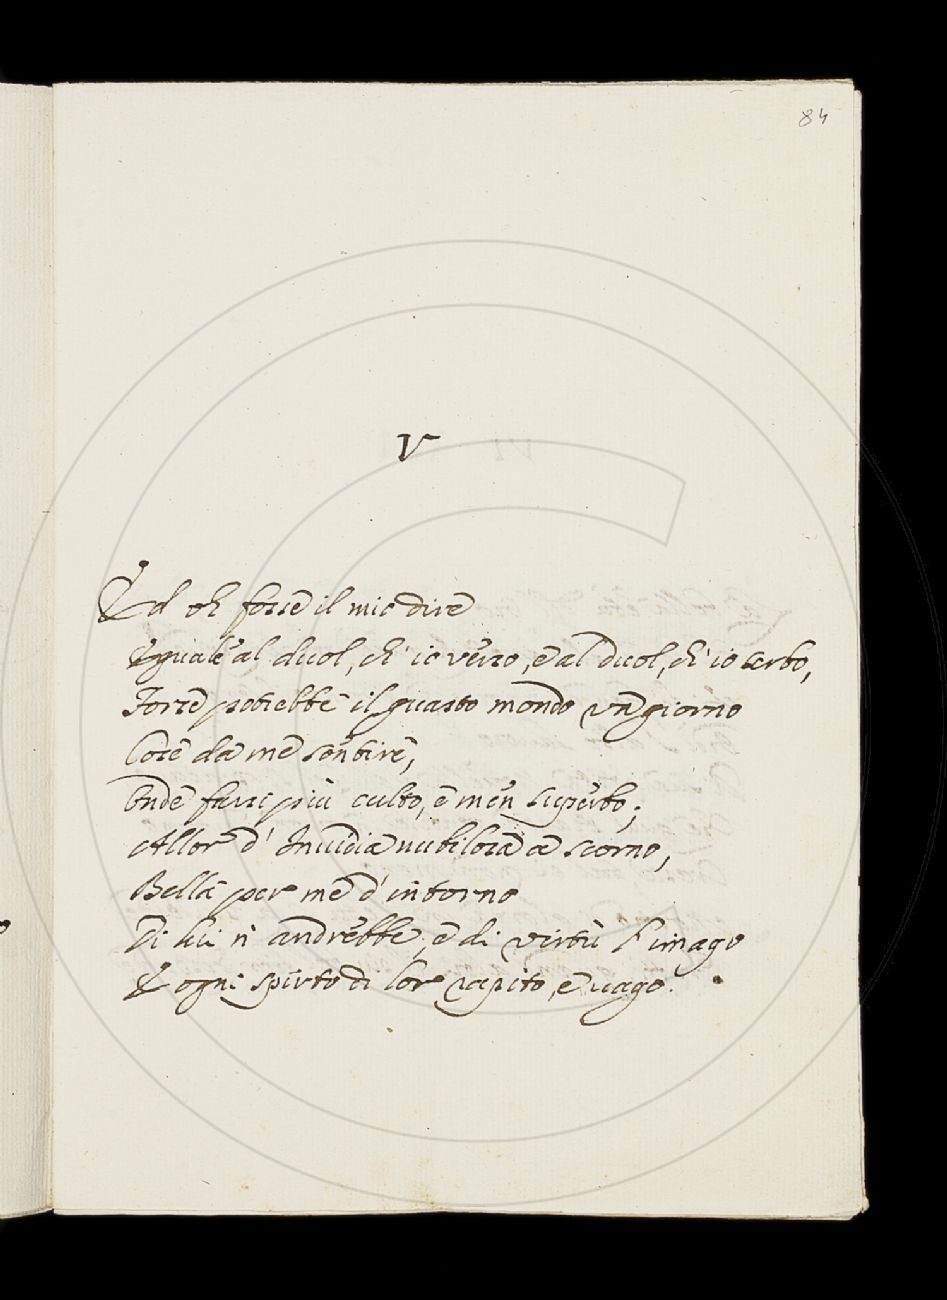 84
V
Ed oh fosse il mio dire
Eguale al duol, ch' io verso, e al duol, ch' io serbo,
Forse potrebbe il guasto mondo un giorno
Cose da me sentire,
Onde farsi più culto, e men superbo;
Allor d' Invidia nubilosa a scorno,
Bella per me d' intorno
Di lui n' andrebbe, e di virtù l' imago
E ogni spirto di lor rapito, e vago.